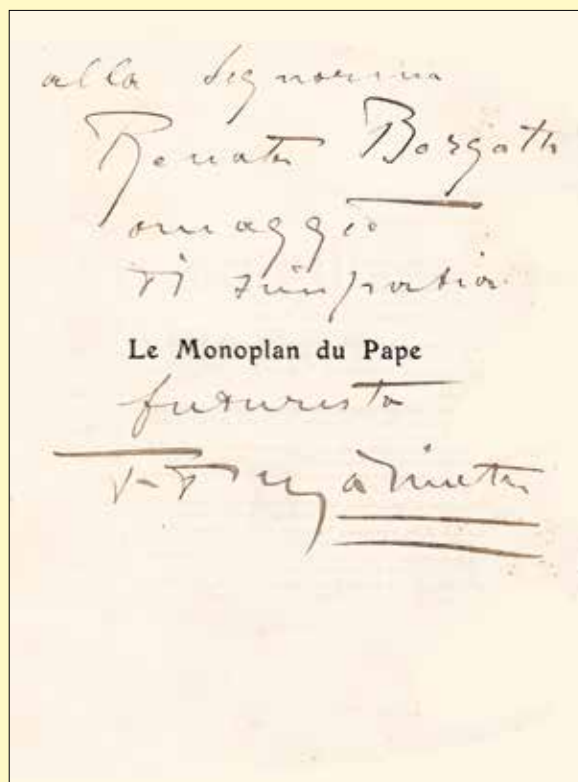 alla Signorina
Renata Borgatti
omaggio
di simpatia
Le Monoplan du Pape
futurista
F. T. Marinetti